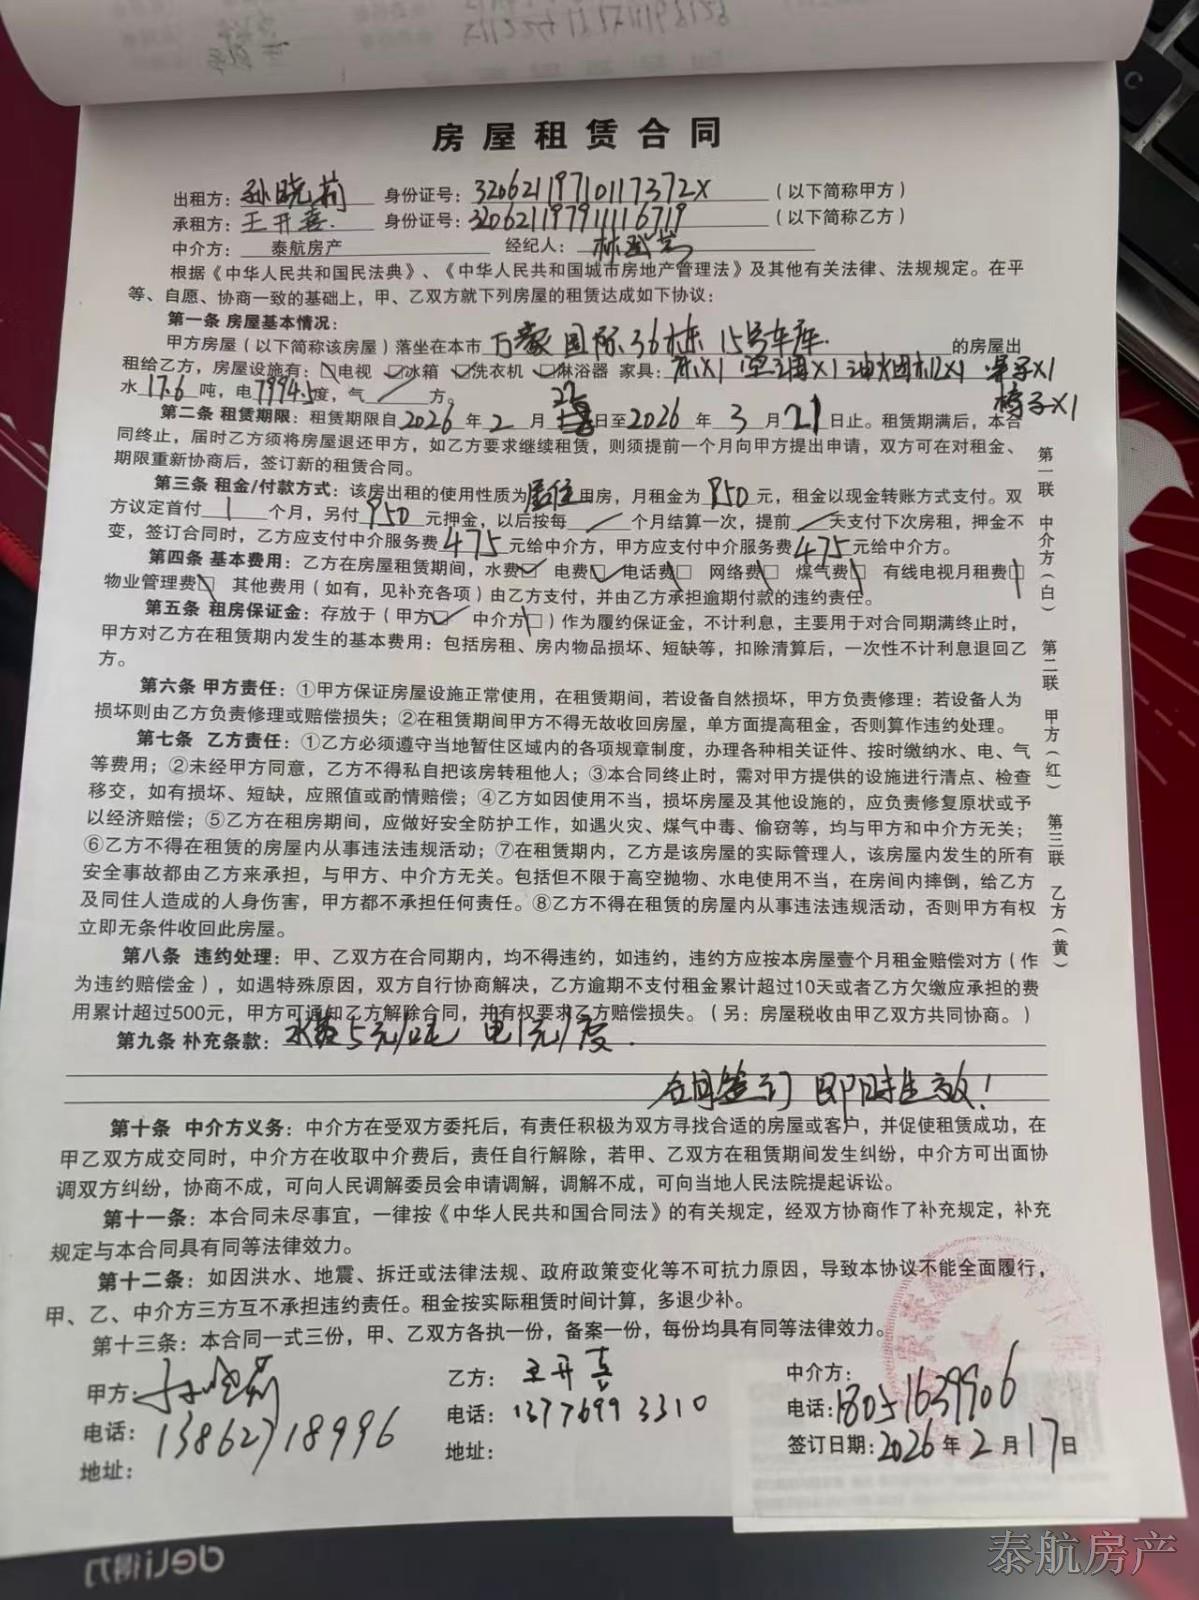 房屋租赁合同
出租方：孙晓莉 身份证号：32062119710117372X （以下简称甲方）
承租方：王开喜. 身份证号：320621197911116719 （以下简称乙方）
中介方： 泰航房产 经纪人：
根据《中华人民共和国民法典》、《中华人民共和国城市房地产管理法》及其他有关法律、法规规定。在平
等、自愿、协商一致的基础上，甲、乙双方就下列房屋的租赁达成如下协议：
第一条 房屋基本情况：
甲方房屋（以下简称该房屋）落坐在本市 万豪国际36栋15号车库. 的房屋出
租给乙方，房屋设施有：□电视 □冰箱 □洗衣机 □淋浴器 家具：床X1 空调X1 油烟机X1 桌子X1
椅子X1
水17.6吨，电7994.5度，气 方。
第二条 租赁期限：租赁期限自2026年2月22日至2026年3月21日止。租赁期满后，本合
同终止，届时乙方须将房屋退还甲方，如乙方要求继续租赁，则须提前一个月向甲方提出申请，双方可在对租金、
期限重新协商后，签订新的租赁合同。
第三条 租金/付款方式：该房出租的使用性质为居住用房，月租金为950元，租金以现金转账方式支付。双
方议定首付1个月，另付950元押金，以后按每 / 个月结算一次，提前 / 天支付下次房租，押金不
变，签订合同时，乙方应支付中介服务费475元给中介方，甲方应支付中介服务费475元给中介方。
第四条 基本费用：乙方在房屋租赁期间，水费□ 电费□ 电话费□ 网络费□ 煤气费□ 有线电视月租费□
物业管理费□ 其他费用（如有，见补充各项）由乙方支付，并由乙方承担逾期付款的违约责任。
第五条 租房保证金：存放于（甲方□ 中介方□）作为履约保证金，不计利息，主要用于对合同期满终止时，
甲方对乙方在租赁期内发生的基本费用：包括房租、房内物品损坏、短缺等，扣除清算后，一次性不计利息退回乙
方。
第六条 甲方责任：①甲方保证房屋设施正常使用，在租赁期间，若设备自然损坏，甲方负责修理：若设备人为
损坏则由乙方负责修理或赔偿损失；②在租赁期间甲方不得无故收回房屋，单方面提高租金，否则算作违约处理。
第七条 乙方责任：①乙方必须遵守当地暂住区域内的各项规章制度，办理各种相关证件、按时缴纳水、电、气
等费用；②未经甲方同意，乙方不得私自把该房转租他人；③本合同终止时，需对甲方提供的设施进行清点、检查
移交，如有损坏、短缺，应照值或酌情赔偿；④乙方如因使用不当，损坏房屋及其他设施的，应负责修复原状或予
以经济赔偿；⑤乙方在租房期间，应做好安全防护工作，如遇火灾、煤气中毒、偷窃等，均与甲方和中介方无关；
⑥乙方不得在租赁的房屋内从事违法违规活动；⑦在租赁期内，乙方是该房屋的实际管理人，该房屋内发生的所有
安全事故都由乙方来承担，与甲方、中介方无关。包括但不限于高空抛物、水电使用不当，在房间内摔倒，给乙方
及同住人造成的人身伤害，甲方都不承担任何责任。⑧乙方不得在租赁的房屋内从事违法违规活动，否则甲方有权
立即无条件收回此房屋。
第八条 违约处理：甲、乙双方在合同期内，均不得违约，如违约，违约方应按本房屋壹个月租金赔偿对方（作
为违约赔偿金），如遇特殊原因，双方自行协商解决，乙方逾期不支付租金累计超过10天或者乙方欠缴应承担的费
用累计超过500元，甲方可通知乙方解除合同，并有权要求乙方赔偿损失。（另：房屋税收由甲乙双方共同协商。）
第九条 补充条款：水费5元/吨 电1元/度.
合同签订 即时生效！
第十条 中介方义务：中介方在受双方委托后，有责任积极为双方寻找合适的房屋或客户，并促使租赁成功，在
甲乙双方成交同时，中介方在收取中介费后，责任自行解除，若甲、乙双方在租赁期间发生纠纷，中介方可出面协
调双方纠纷，协商不成，可向人民调解委员会申请调解，调解不成，可向当地人民法院提起诉讼。
第十一条：本合同未尽事宜，一律按《中华人民共和国合同法》的有关规定，经双方协商作了补充规定，补充
规定与本合同具有同等法律效力。
第十二条：如因洪水、地震、拆迁或法律法规、政府政策变化等不可抗力原因，导致本协议不能全面履行，
甲、乙、中介方三方互不承担违约责任。租金按实际租赁时间计算，多退少补。
第十三条：本合同一式三份，甲、乙双方各执一份，备案一份，每份均具有同等法律效力。
甲方：孙晓莉 乙方：王开喜 中介方：
电话：13862718996 电话：13776993310 电话：18051639906
地址： 地址： 签订日期：2026年2月17日
第一联 中介方（白） 第二联 甲方（红） 第三联 乙方（黄）
deli得力
泰航房产